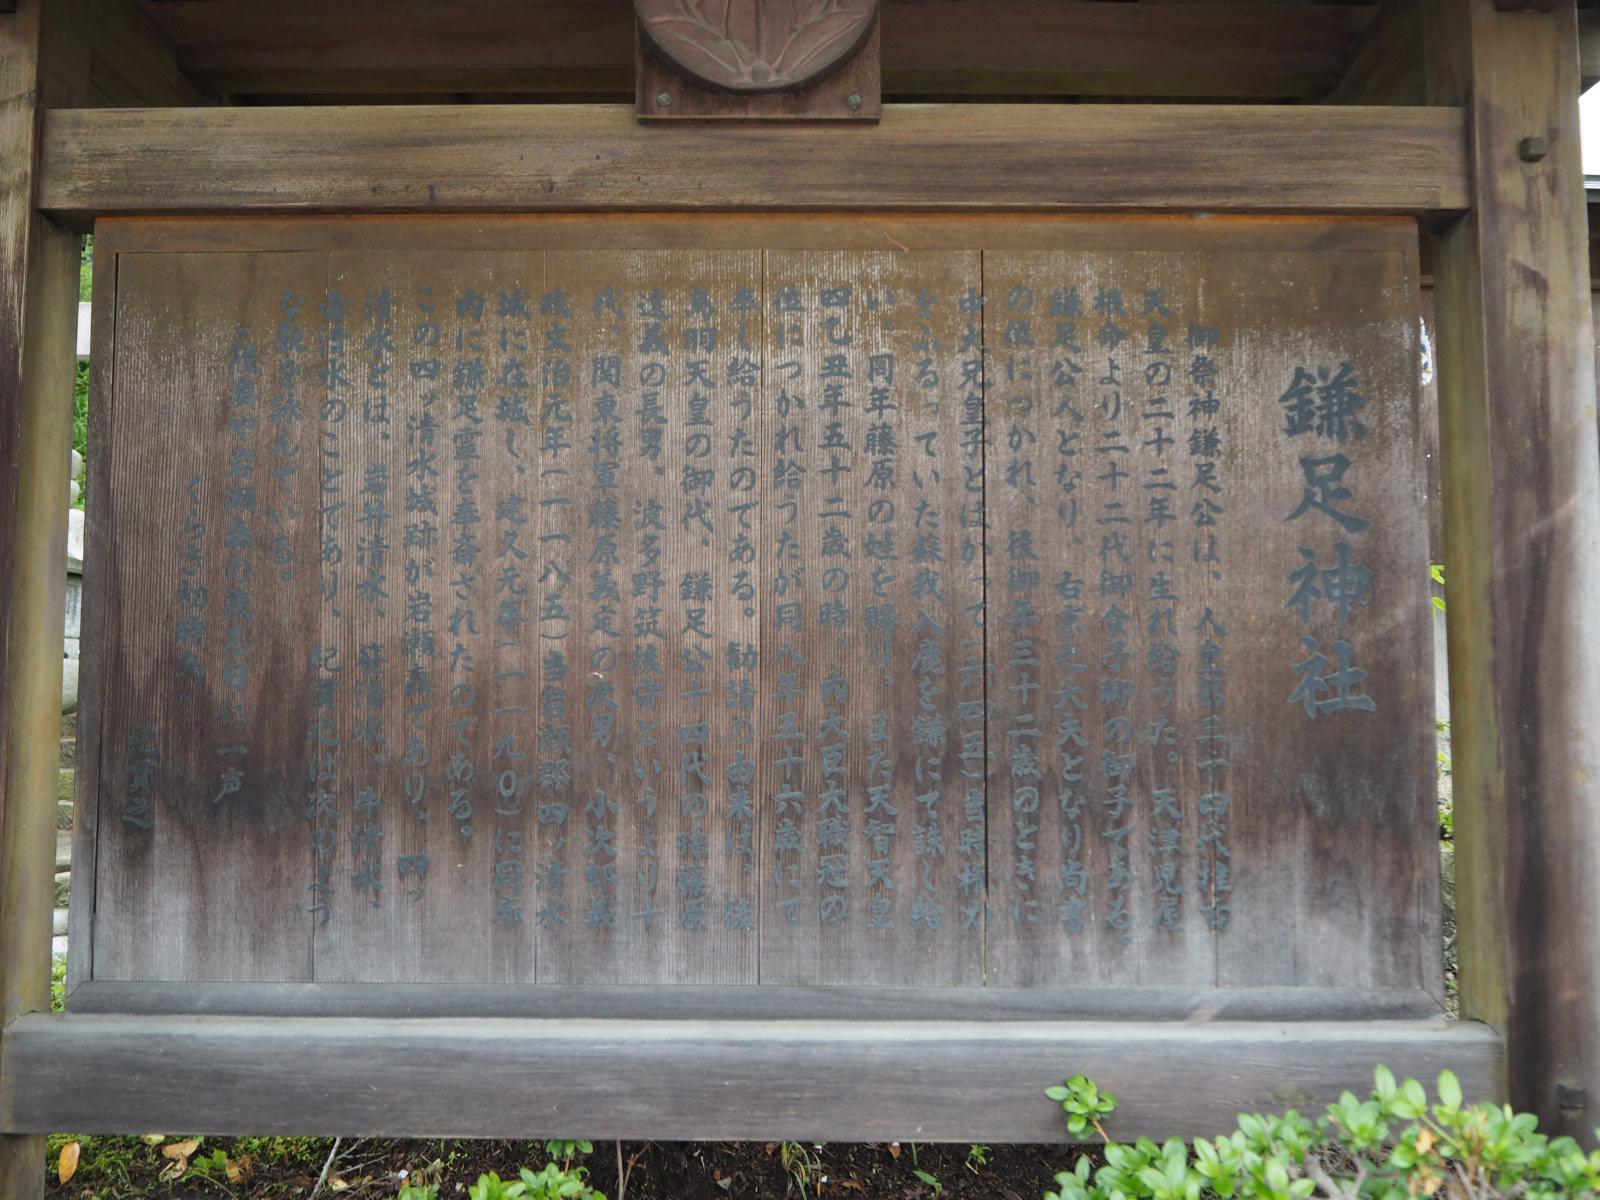 鎌足神社
御祭神鎌足公は、人皇第三十四代推古
天皇の二十二年に生れ給うた。天津児屋
根命より二十二代御食子卿の御子である。
鎌足公人となり、右京之大夫となり尚書
の位につかれ、後御年三十二歳のときに
中大兄皇子とはかって(六四五)当時権力
をふるっていた蘇我入鹿を鎌にて誅し給
い、同年藤原の姓を賜り、また天智天皇
四乙丑年五十二歳の時、内大臣大職冠の
位につかれ給うたが同八年五十六歳にて
卒し給うたのである。勧請の由来は、後
鳥羽天皇の御代、鎌足公十四代の孫藤原
遠義の長男、波多野筑後守というより十
代、関東将軍藤原義定の次男、小次郎義
政文治元年(一一八五)当岩瀬郡四ッ清水
城に在城し、建久元年(一一九〇)に同郭
内に鎌足霊を奉斎されたのである。
この四ッ清水城跡が岩瀬森であり、四ッ
清水とは、岩井清水、 清水、牛清水、
清水のことであり、紀貫之は次のよう
な歌を詠んでいる。
陸奥や岩瀬森の茂る日に一声
くらき初時鳥
紀貫之